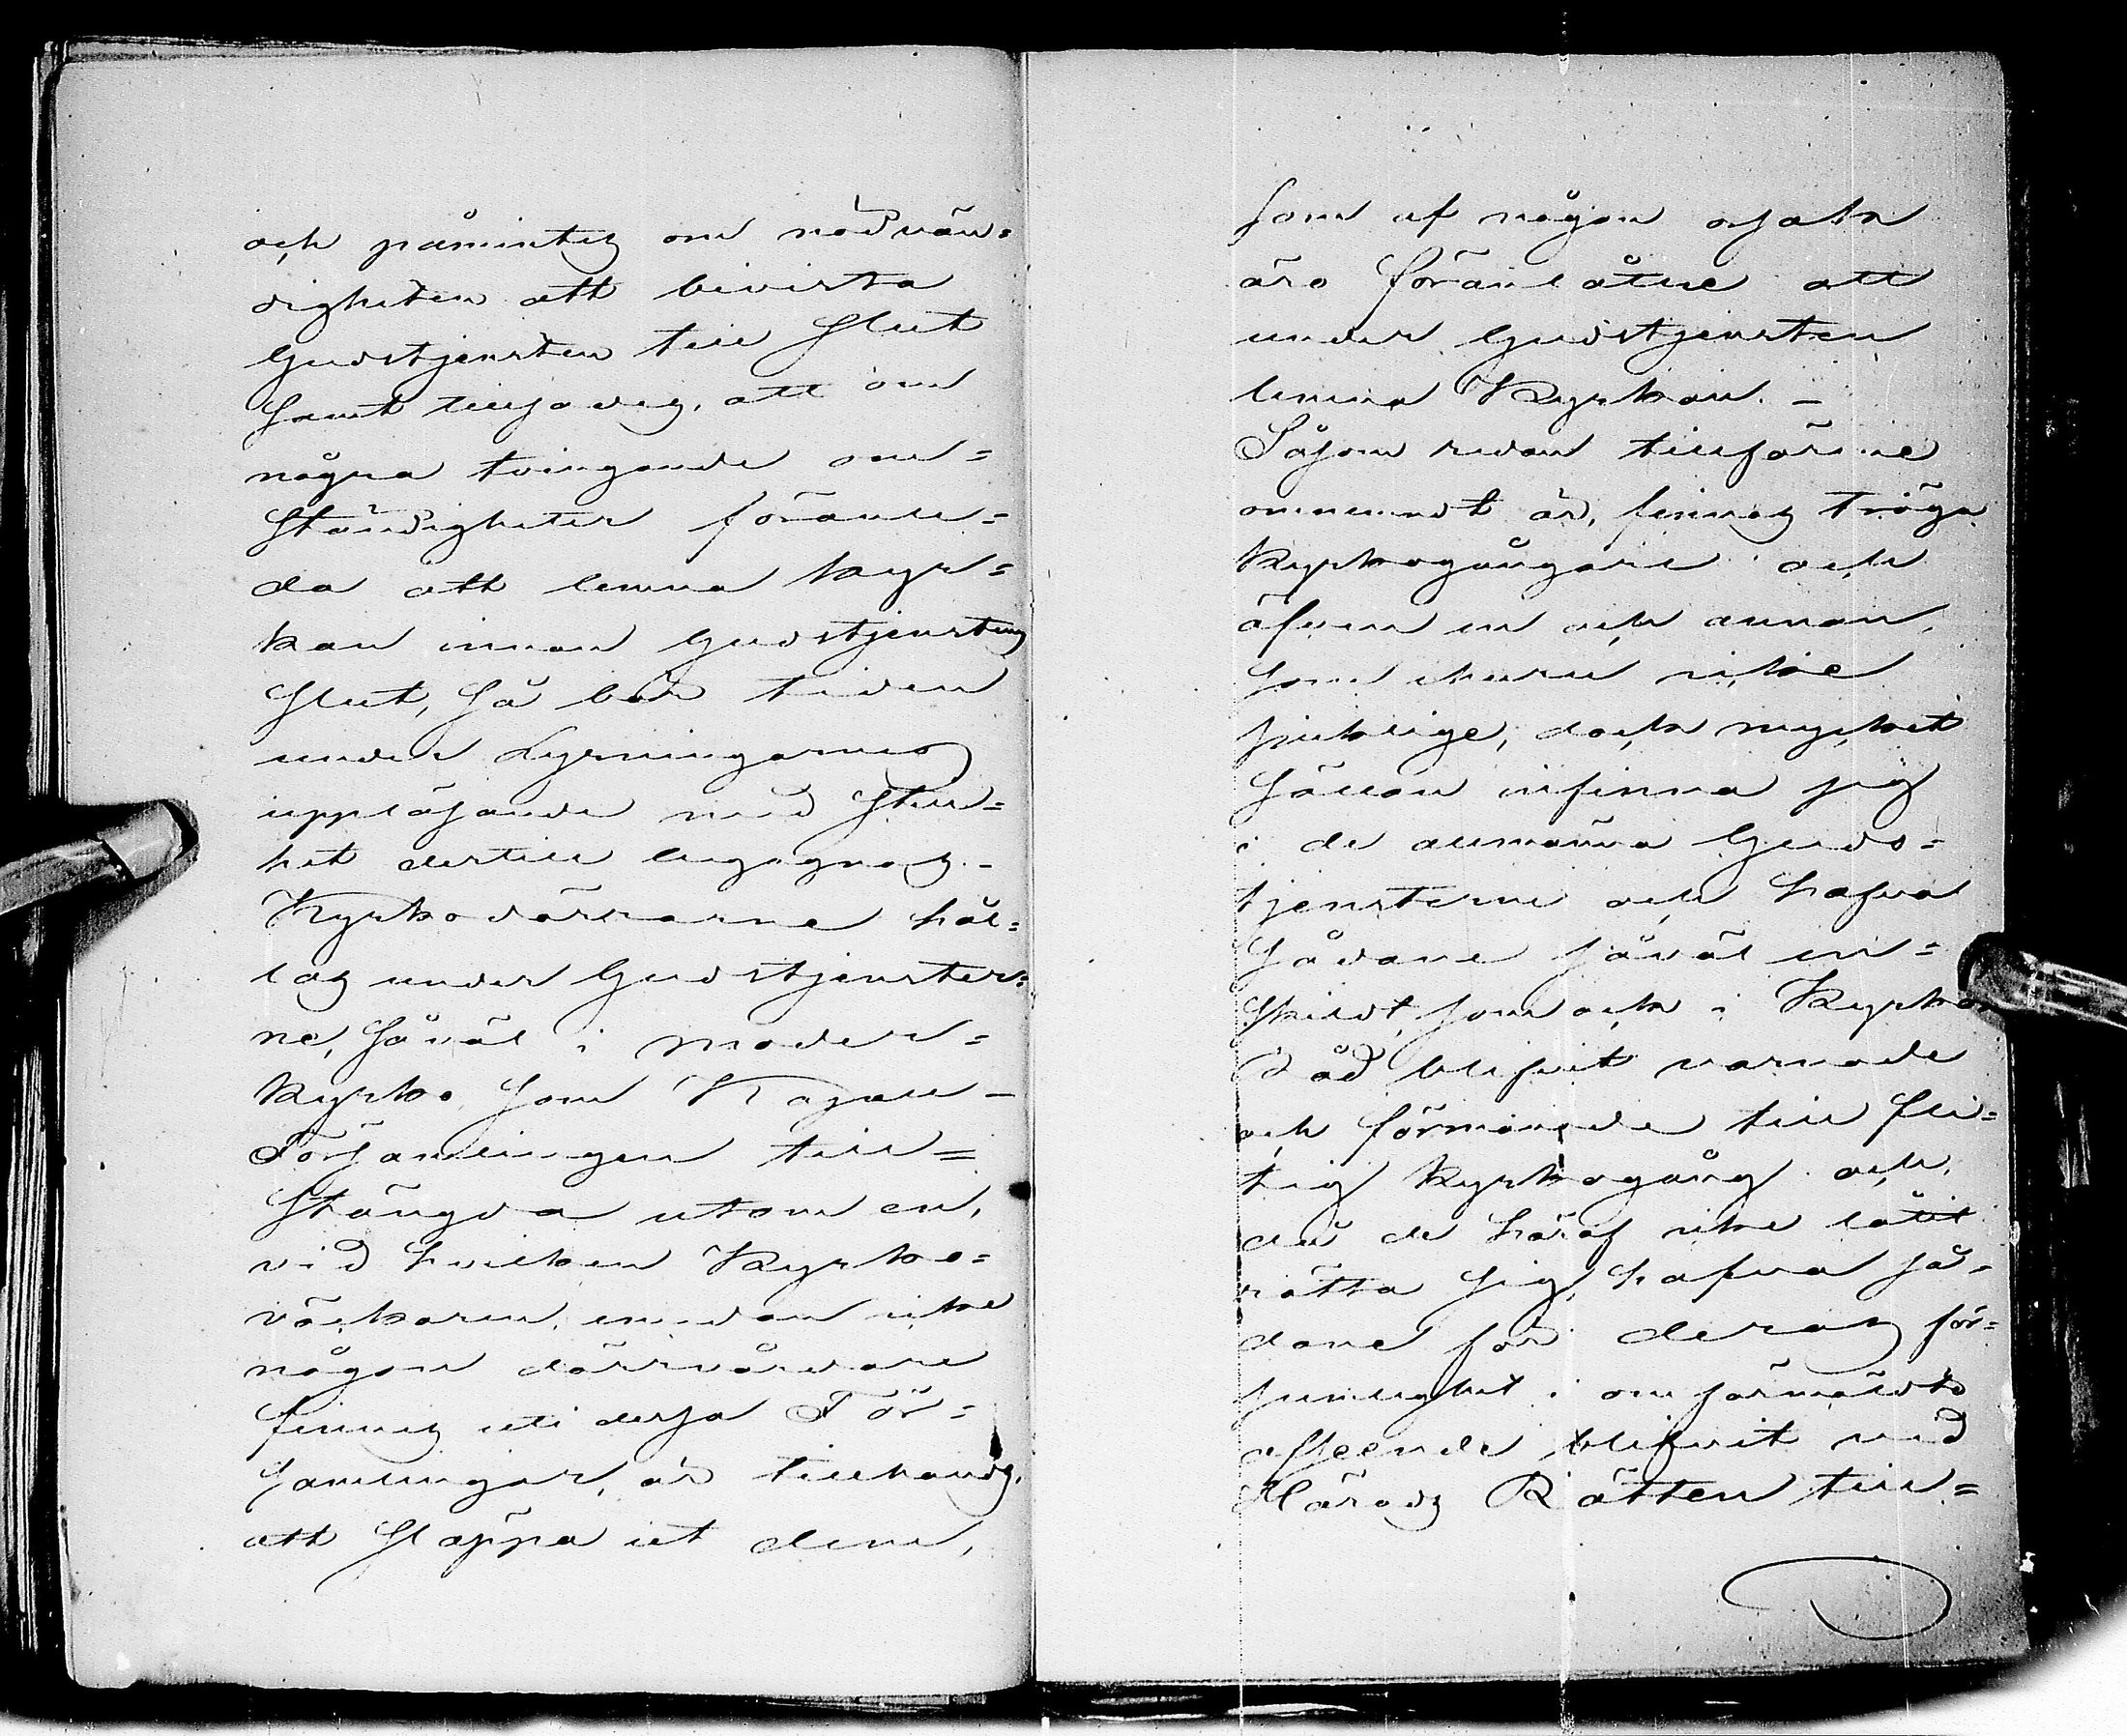 och påmintes om nödvän=
digheten att bevista
Gudstjensten till slut
samt tillsades, att om
några tvingande om=
ständigheter föranle=
da att lemna kyr=
kan innan Gudstjenstens
slut, så bör tiden
under Lysningarnes
uppläsande med still=
het dertill begagnas.-
Kyrkodörrarne hål=
las under Gudstjenster=
ne, såväl i moder=
kyrko som Kapell-
Församlingen till=
stängda utom en,
vid hvilken Kyrko=
väcktaren, emedan icke
någon dörrvårdare
finnes uti dessa För=
samlingar, är tillhands,
att släppa ut dem,
som af någon orsak
äro föranlåtne att
under Gudstjensten
lemna Kyrkan. -
Såsom redan tillförene
omnemndt är, finnas tröge
kyrkogångare och
äfven en och annan,
som ehuru icke
sjuklige, dock mycket
sällan infinna sig
i de allmänna Guds=
tjensterne och hafva
sådane såväl en=
skildt, som ock i Kyrko
Råd blifvit varnade
och förmanade till fli=
tig kyrkogång och,
då de häraf icke låtit
rätta sig, hafva så=
dane för deras för=
sumlighet i omförmäldte
afseende blifvit vid
Härads Rätten till=